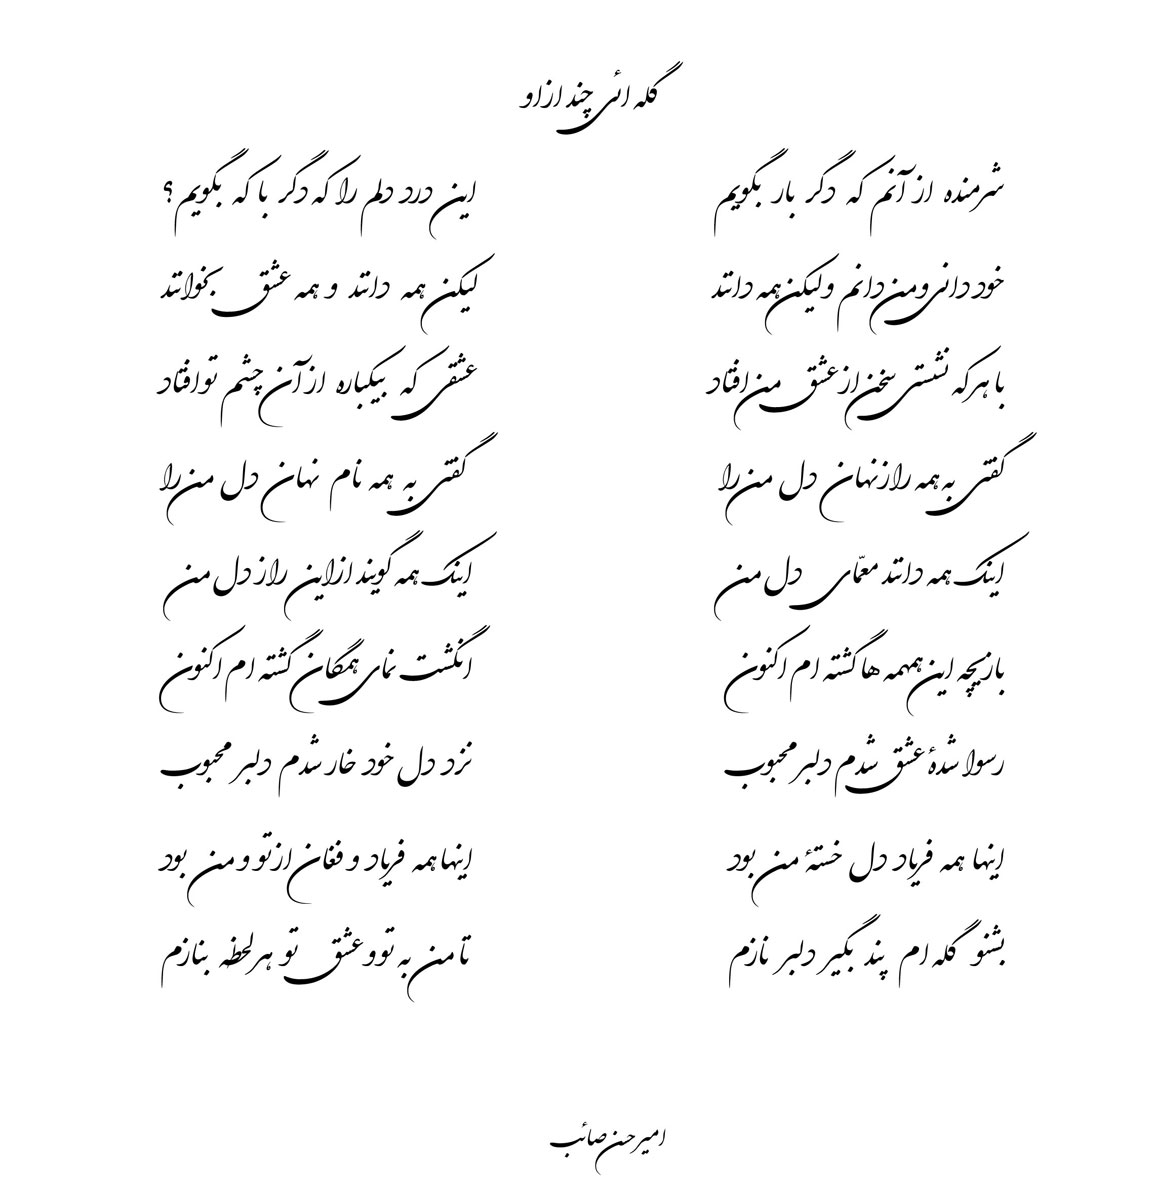 گله ائی چند از او
شرمنده از آنم که دگر بار بگویم این درد دلم را که دگر با که بگویم ؟
خود دانی و من دانم و لیکن همه دانند لیکن همه دانند و همه عشق بخوانند
با هر که نشستی سخن از عشق من افتاد عشقی که بیکباره از آن چشم تو افتاد
گفتی به همه راز نهان دل من را گفتی به همه نام نهان دل من را
اینک همه دانند معمّای دل من اینک همه گویند از این راز دل من
بازیچه این همهمه ها گشته ام اکنون انگشت نمای همگان گشته ام اکنون
رسوا شدهٔ عشق شدم دلبر محبوب نزد دل خود خار شدم دلبر محبوب
اینها همه فریاد دل خستهٔ من بود اینها همه فریاد و فغان از تو و من بود
بشنو گله ام پند بگیر دلبر نازم تا من به تو و عشق تو هر لحظه بنازم
امیرحسن صائب